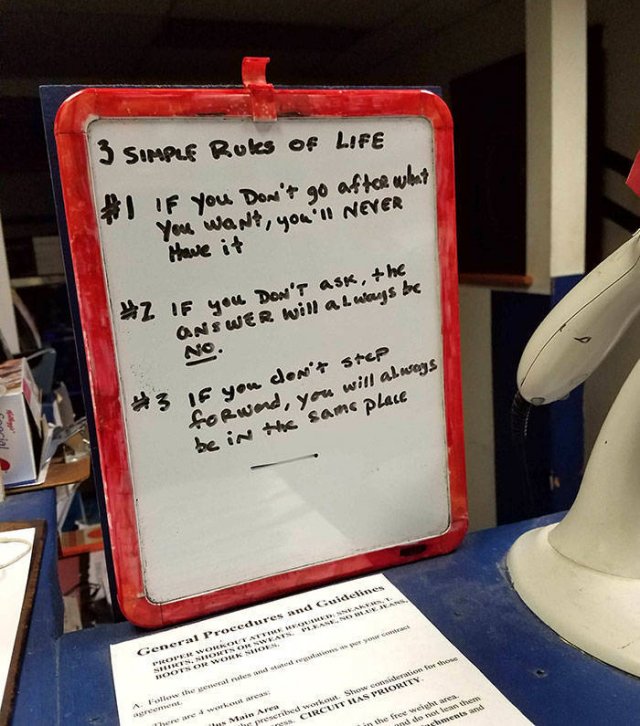 3 SIMPLE RULES OF LIFE
#1 IF YOU DON'T go after what
You want, you'll NEVER
Have it
#2 IF you DON'T ask, the
ANSWER will always be
NO.
#3 IF you don't step
forward, you will always
be in the same place
General Procedures and Guidelines
PROPER WORKOUT ATTIRE REQUIRED, SNEAKERS, T-
SHIRTS, SHORTS OR SWEATS. PLEASE, NO BLUE JEANS,
BOOTS OR WORK SHOES.
A. Follow the general rules and stated regulations as per your contract
agreement.
There are 4 workout areas:
Main Area
prescribed workout. Show consideration for those
CIRCUIT HAS PRIORITY.
in the free weight area.
and do not lean them
and